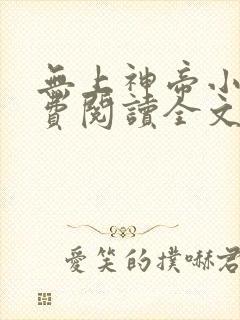 無上神帝小
費閱讀全文
愛笑的撲嚇君